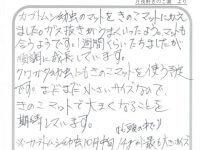 近視好きのご園 より
カブトムシ幼虫のマットをきのこマットにかえ
ました。ガス抜きがうまくいったようでマットも
合うようです。1週間くらいたちましたが
順調に成長しています。
クワガタの幼虫にもきのこマットを使う予定
です。まだまだ小さいサイズなんで、
きのこマットで大きくなることを
期待しています。
カブトムシ幼虫10月中旬 最も大きいサイズ